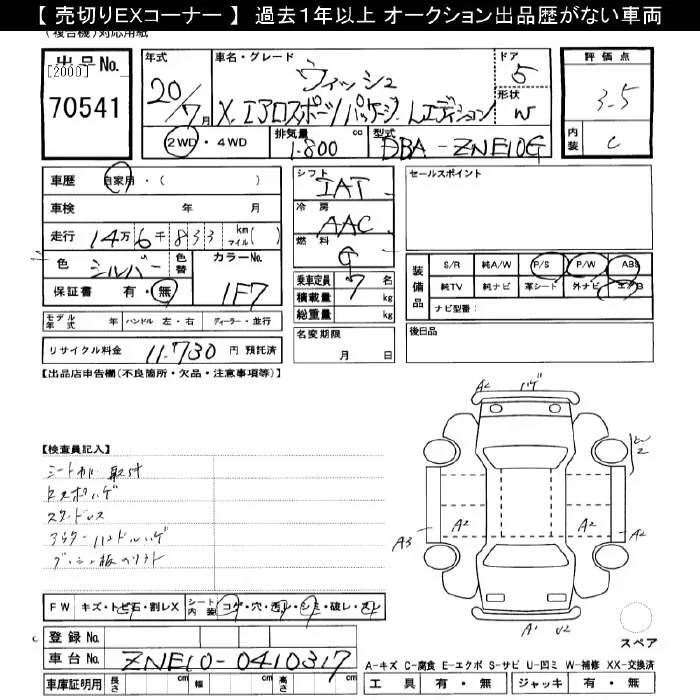 【 売切りEXコーナー 】 過去1年以上 オークション出品歴がない車両
(複合機)対応用紙
出品No.
[2000]
70541
年式
20/7月
車名・グレード
ウィッシュ
X.エアロスポーツパッケージ.Lエディション
ドア
5
形状
W
評価点
3.5
内装
C
2WD・4WD
排気量
1.800
cc
型式
DBA-ZNE10G
車歴 自家用・( )
車検 年 月
走行 14万6千833 km マイル( )
色 シルバー 色替 カラーNo. 1F7
保証書 有・無
モデル年式 年 ハンドル 左・右 ディーラー・並行
リサイクル料金 11.730 円 預託済
シフト
IAT
冷房
AAC
燃料
G
乗車定員 7 名
積載量 kg
総重量 kg
名変期限
月 日
セールスポイント
装備品
S/R 純A/W P/S P/W ABS
純TV 純ナビ 革シート 外ナビ エアB
ナビ型番:
後日品
【出品店申告欄(不良箇所・欠品・注意事項等)】
【検査員記入】
シートカバー取付
スタッドレス
A2 ハゲ
A3 A2 A2 A2
A1 U2
スペア
FW キズ・トビ石・割レX シート内装 コゲ・穴・汚レ・シミ・破レ・スレ
登録No.
車台No. ZNE10-0410317
車庫証明用 長さ cm 幅 cm 高さ cm
A-キズ C-腐食 E-エクボ S-サビ U-凹ミ W-補修 XX-交換済
工具 有・無 ジャッキ 有・無